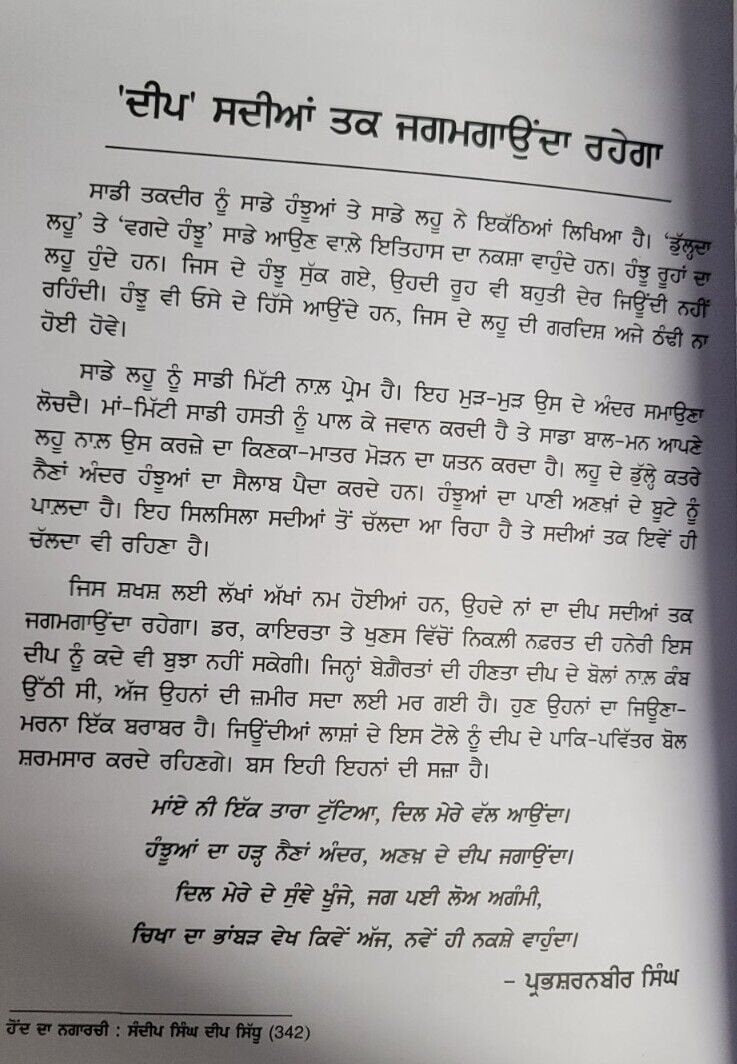 'ਦੀਪ' ਸਦੀਆਂ ਤਕ ਜਗਮਗਾਉਂਦਾ ਰਹੇਗਾ
ਸਾਡੀ ਤਕਦੀਰ ਨੂੰ ਸਾਡੇ ਹੰਝੂਆਂ ਤੇ ਸਾਡੇ ਲਹੂ ਨੇ ਇਕੱਠਿਆਂ ਲਿਖਿਆ ਹੈ। 'ਡੁੱਲ੍ਹਦਾ
ਲਹੂ' ਤੇ 'ਵਗਦੇ ਹੰਝੂ' ਸਾਡੇ ਆਉਣ ਵਾਲ਼ੇ ਇਤਿਹਾਸ ਦਾ ਨਕਸ਼ਾ ਵਾਹੁੰਦੇ ਹਨ। ਹੰਝੂ ਰੂਹਾਂ ਦਾ
ਲਹੂ ਹੁੰਦੇ ਹਨ। ਜਿਸ ਦੇ ਹੰਝੂ ਸੁੱਕ ਗਏ, ਉਹਦੀ ਰੂਹ ਵੀ ਬਹੁਤੀ ਦੇਰ ਜਿਊਂਦੀ ਨਹੀਂ
ਰਹਿੰਦੀ। ਹੰਝੂ ਵੀ ਓਸੇ ਦੇ ਹਿੱਸੇ ਆਉਂਦੇ ਹਨ, ਜਿਸ ਦੇ ਲਹੂ ਦੀ ਗਰਦਿਸ਼ ਅਜੇ ਠੰਢੀ ਨਾ
ਹੋਈ ਹੋਵੇ।
ਸਾਡੇ ਲਹੂ ਨੂੰ ਸਾਡੀ ਮਿੱਟੀ ਨਾਲ਼ ਪ੍ਰੇਮ ਹੈ। ਇਹ ਮੁੜ-ਮੁੜ ਉਸ ਦੇ ਅੰਦਰ ਸਮਾਉਣਾ
ਲੋਚਦੈ। ਮਾਂ-ਮਿੱਟੀ ਸਾਡੀ ਹਸਤੀ ਨੂੰ ਪਾਲ ਕੇ ਜਵਾਨ ਕਰਦੀ ਹੈ ਤੇ ਸਾਡਾ ਬਾਲ-ਮਨ ਆਪਣੇ
ਲਹੂ ਨਾਲ਼ ਉਸ ਕਰਜ਼ੇ ਦਾ ਕਿਣਕਾ-ਮਾਤਰ ਮੋੜਨ ਦਾ ਯਤਨ ਕਰਦਾ ਹੈ। ਲਹੂ ਦੇ ਡੁੱਲ੍ਹੇ ਕਤਰੇ
ਨੈਣਾਂ ਅੰਦਰ ਹੰਝੂਆਂ ਦਾ ਸੈਲਾਬ ਪੈਦਾ ਕਰਦੇ ਹਨ। ਹੰਝੂਆਂ ਦਾ ਪਾਣੀ ਅਣਖਾਂ ਦੇ ਬੂਟੇ ਨੂੰ
ਪਾਲ਼ਦਾ ਹੈ। ਇਹ ਸਿਲਸਿਲਾ ਸਦੀਆਂ ਤੋਂ ਚੱਲਦਾ ਆ ਰਿਹਾ ਹੈ ਤੇ ਸਦੀਆਂ ਤਕ ਇਵੇਂ ਹੀ
ਚੱਲਦਾ ਵੀ ਰਹਿਣਾ ਹੈ।
ਜਿਸ ਸ਼ਖਸ਼ ਲਈ ਲੱਖਾਂ ਅੱਖਾਂ ਨਮ ਹੋਈਆਂ ਹਨ, ਉਹਦੇ ਨਾਂ ਦਾ ਦੀਪ ਸਦੀਆਂ ਤਕ
ਜਗਮਗਾਉਂਦਾ ਰਹੇਗਾ। ਡਰ, ਕਾਇਰਤਾ ਤੇ ਖੁਣਸ ਵਿੱਚੋਂ ਨਿਕਲ਼ੀ ਨਫ਼ਰਤ ਦੀ ਹਨੇਰੀ ਇਸ
ਦੀਪ ਨੂੰ ਕਦੇ ਵੀ ਬੁਝਾ ਨਹੀਂ ਸਕੇਗੀ। ਜਿਨ੍ਹਾਂ ਬੇਗ਼ੈਰਤਾਂ ਦੀ ਹੀਣਤਾ ਦੀਪ ਦੇ ਬੋਲਾਂ ਨਾਲ਼ ਕੰਬ
ਉੱਠੀ ਸੀ, ਅੱਜ ਉਹਨਾਂ ਦੀ ਜ਼ਮੀਰ ਸਦਾ ਲਈ ਮਰ ਗਈ ਹੈ। ਹੁਣ ਉਹਨਾਂ ਦਾ ਜਿਊਣਾ-
ਮਰਨਾ ਇੱਕ ਬਰਾਬਰ ਹੈ। ਜਿਊਂਦੀਆਂ ਲਾਸ਼ਾਂ ਦੇ ਇਸ ਟੋਲੇ ਨੂੰ ਦੀਪ ਦੇ ਪਾਕਿ-ਪਵਿੱਤਰ ਬੋਲ
ਸ਼ਰਮਸਾਰ ਕਰਦੇ ਰਹਿਣਗੇ। ਬਸ ਇਹੀ ਇਹਨਾਂ ਦੀ ਸਜ਼ਾ ਹੈ।
ਮਾਂਏ ਨੀ ਇੱਕ ਤਾਰਾ ਟੁੱਟਿਆ, ਦਿਲ ਮੇਰੇ ਵੱਲ ਆਉਂਦਾ।
ਹੰਝੂਆਂ ਦਾ ਹੜ੍ਹ ਨੈਣਾਂ ਅੰਦਰ, ਅਣਖ਼ ਦੇ ਦੀਪ ਜਗਾਉਂਦਾ।
ਦਿਲ ਮੇਰੇ ਦੇ ਸੁੰਞੇ ਖੂੰਜੇ, ਜਗ ਪਈ ਲੋਅ ਅਗੰਮੀ,
ਚਿਖਾ ਦਾ ਭਾਂਬੜ ਵੇਖ ਕਿਵੇਂ ਅੱਜ, ਨਵੇਂ ਹੀ ਨਕਸ਼ੇ ਵਾਹੁੰਦਾ।
– ਪ੍ਰਭਸ਼ਰਨਬੀਰ ਸਿੰਘ
ਹੋਂਦ ਦਾ ਨਗਾਰਚੀ : ਸੰਦੀਪ ਸਿੰਘ ਦੀਪ ਸਿੱਧੂ (342)